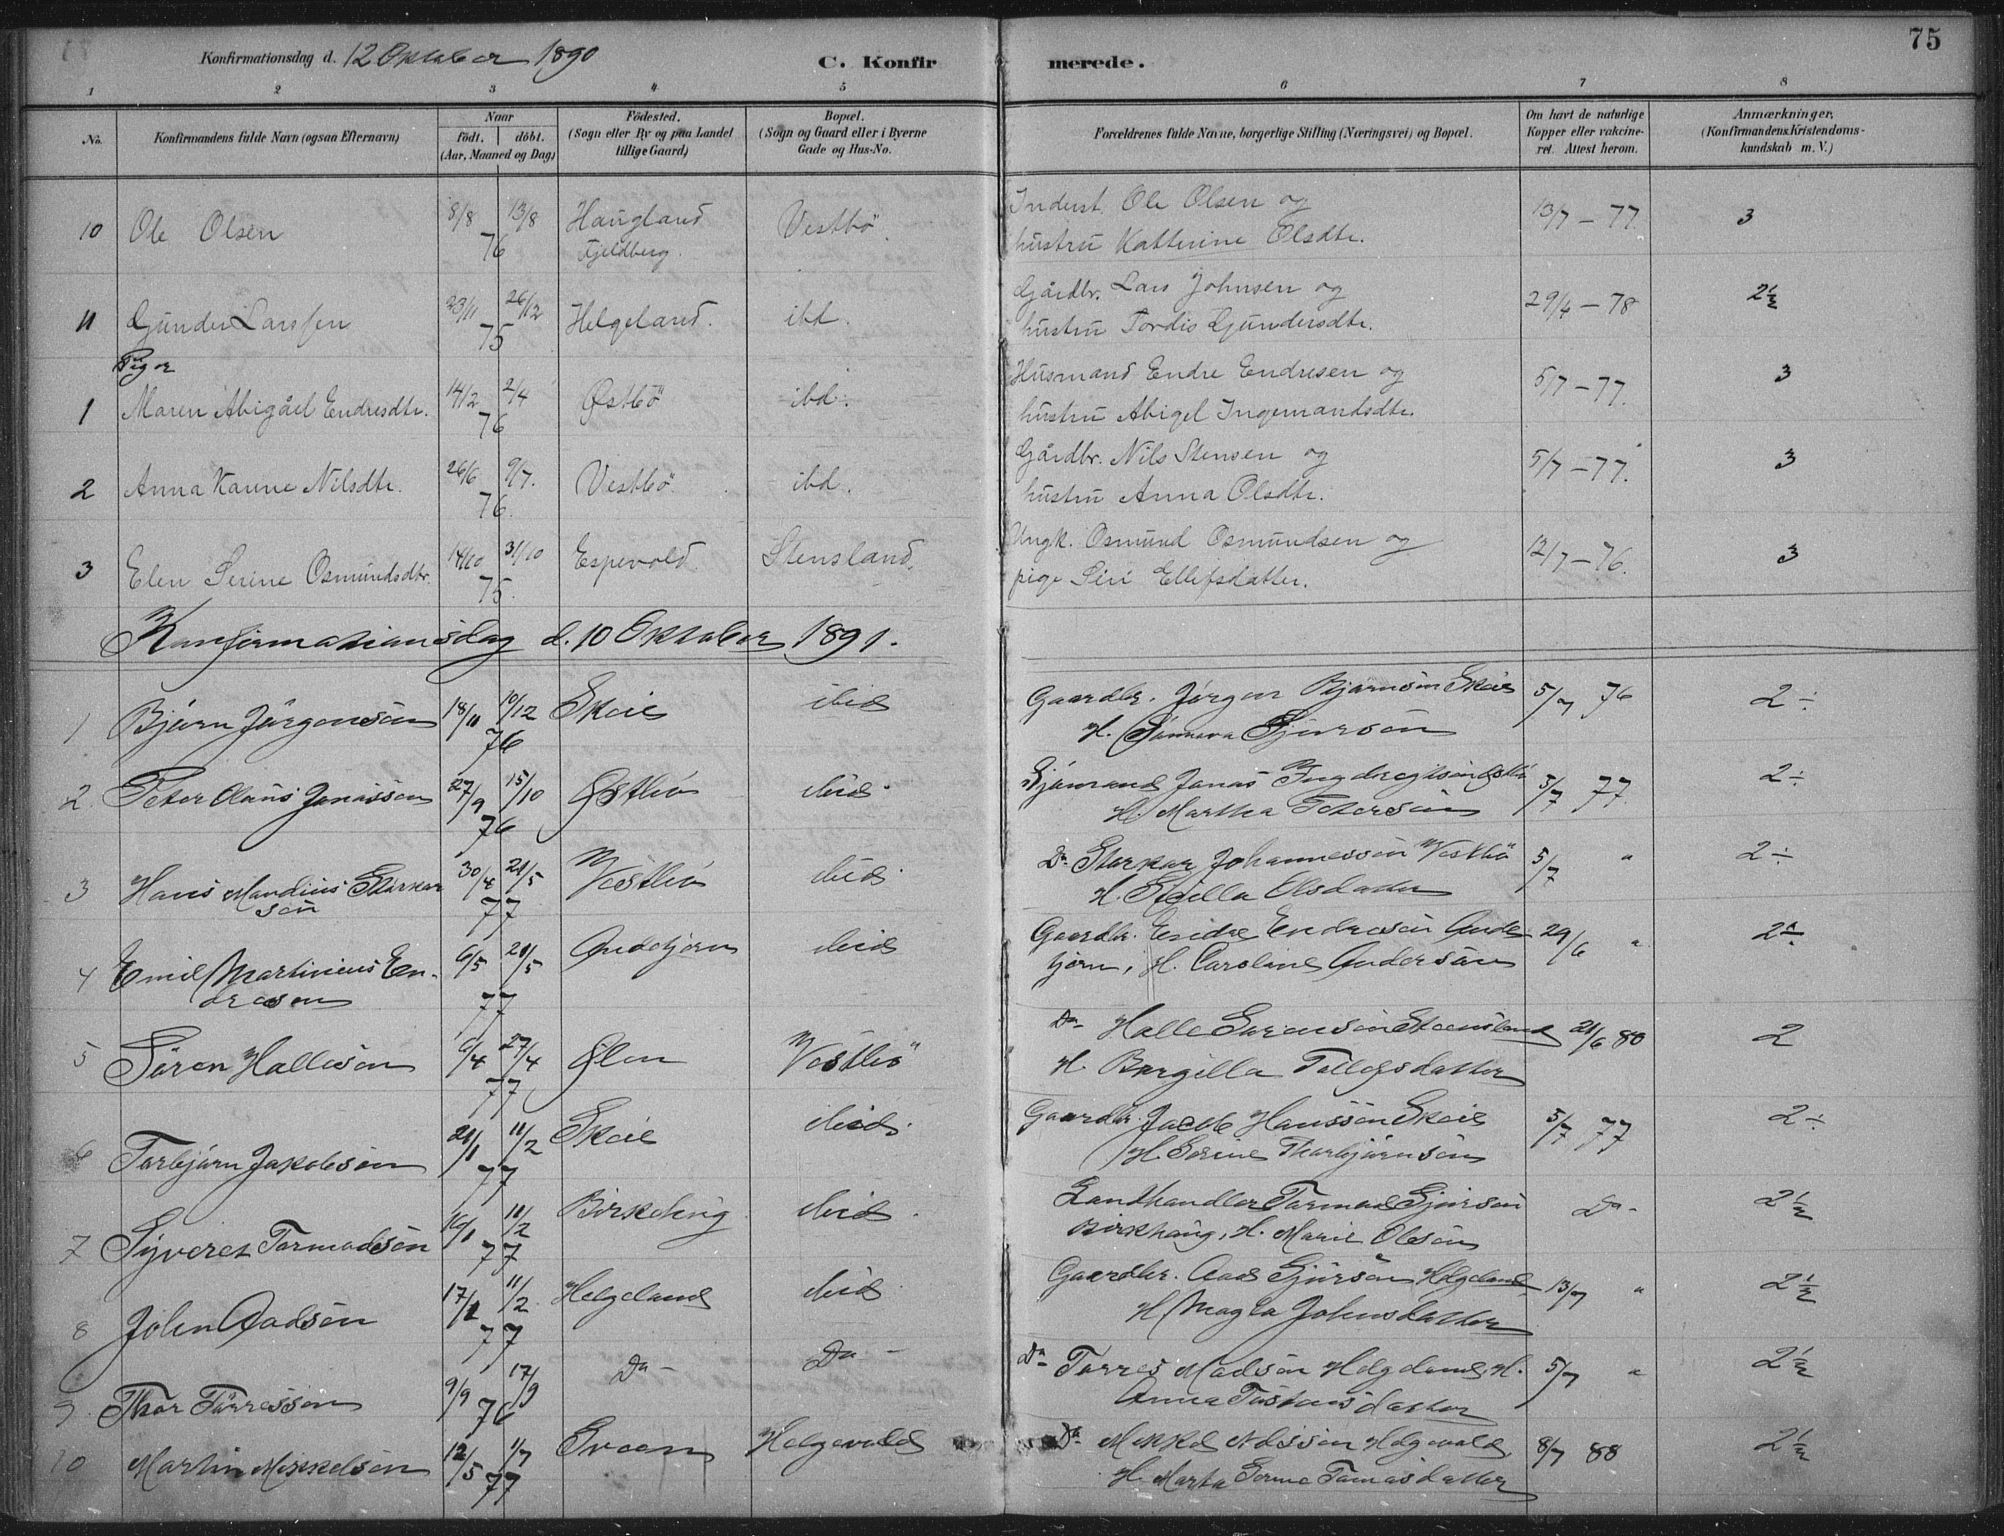 75
Konfirmationsdag d. 12 Oktober 1890
C. Konfirmerede.
1 2 3 4 5 6 7 8
No. Konfirmandens fulde Navn (ogsaa Efternavn) Naar födt. döbt. (Aar, Maaned og Dag) Födested. (Sogn eller By og paa Landet tillige Gaard) Bopæl. (Sogn og Gaard eller i Byerne Gade og Hus-No. Forældrenes fulde Navne, borgerlige Stilling (Næringsvei) og Bopæl. Om havt de naturlige Kopper eller vakcineret. Attest herom. Anmærkninger, (Konfirmandens Kristendomskundskab m. V.)
10 Ole Olsen 8/8 13/8 76 Haugland Fjeldberg. Vestbö. Inderst. Ole Olsen og
hustru Katterine Olsdtr. 13/7 – 77 3
11 Gunder Larssen 23/11 26/12 75 Helgeland. ibd. Gårdbr. Lars Johnsen og
hustru Tordis Gundersdtr. 29/4 – 78 2½
Piger
1 Maren Abigåel Endresdtr. 14/2 2/4 76 Östbö ibd. Husmand Endre Endresen og
hustru Abigel Ingemandsdtr. 5/7 – 77. 3
2 Anna Karine Nilsdtr. 26/6 9/7. 76. Vestbö. ibd. Gårdbr. Nils Stensen og
hustru Anna Olsdtr. 5/7 – 77. 3
3 Elen Serine Osmundsdtr. 14/10 31/10 75. Espevold. Stensland. Ungk. Osmund Osmundsen og
pige Siri Ellefsdatter. 12/7 – 76. 3
Konfirmationsdag d. 10 Oktober 1891.
1 Bjørn Jørgensøn 18/11 10/12 76 Skeie ibid Gaardbr. Jørgen Bjørnsøn Skeie
H. Sjursøn 5/7 76 2÷
2 Peter Olaus Jonassøn 27/9 15/10 76 Østbø ibid. Sjømand Jonas
H. Martha Petersøn 5/7 77 2÷
3 Hans Størkersøn 30/4 21/5 77 Vestbö ibid. Do Størker Johannessøn Vestbö
H. Olsdatter 5/7 " 2÷
4 Emil Martinius Endresøn 6/5 21/5 77 ibid Gaardbr. Endre Endresøn
H. Caroline Andersøn 29/6 "
5 Søren Hallesøn 6/4 27/4 77 Ølen Vestbö Do Halle Sørensøn Steensland
H. Tollefsdatter 21/6 80 2
6 Torbjørn Jakobsøn 21/1 11/2 77 Skeie ibid. Gaardbr. Jacob Hanssøn Skeie
H. Serine Thorbjørnsøn 5/7 77 2÷
7 Syvert Tormodsøn 10/1 11/2 77 Birkehug ibid. Landhandler Tormod Sjursøn
Birkhaug, H. Marie Olsøn Do 2½
8 John Aadsøn 11/2 77 Helgeland ibid Gaardbr. Aad Sjursøn Helgeland
H. Johnsdatter 13/7 " 2½
9 Thor Tørressøn 9/9 17/9 76 Do Do Do Tørres Madsøn Helgeland, H.
Anna 5/7 " 2½
10 Martin Mikkelsøn 12/5 1/7 77 Helgevold Do Mikkel Nilssøn Helgevold
H. Marta Tomasdatter 8/7 88 2½